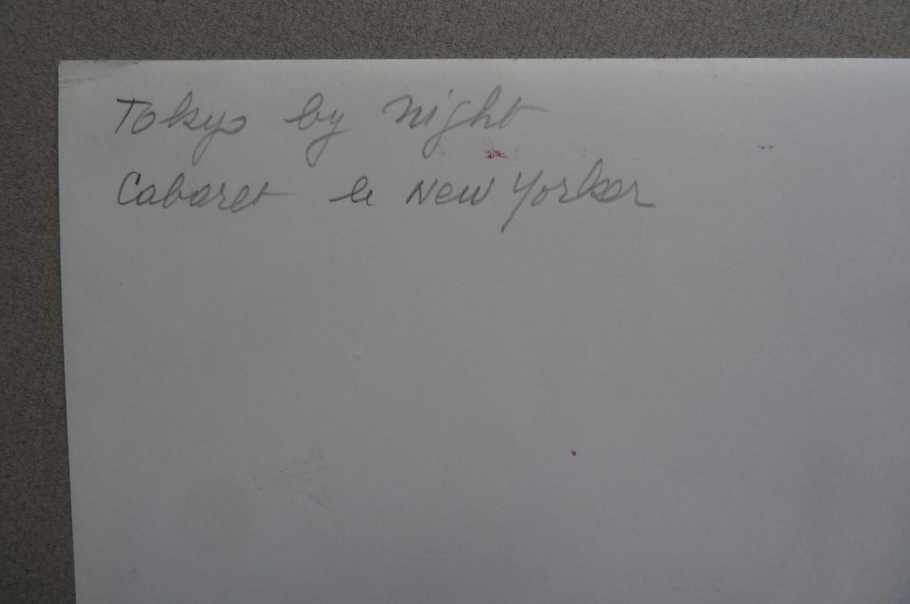 Tokyo by night
Cabaret le New Yorker